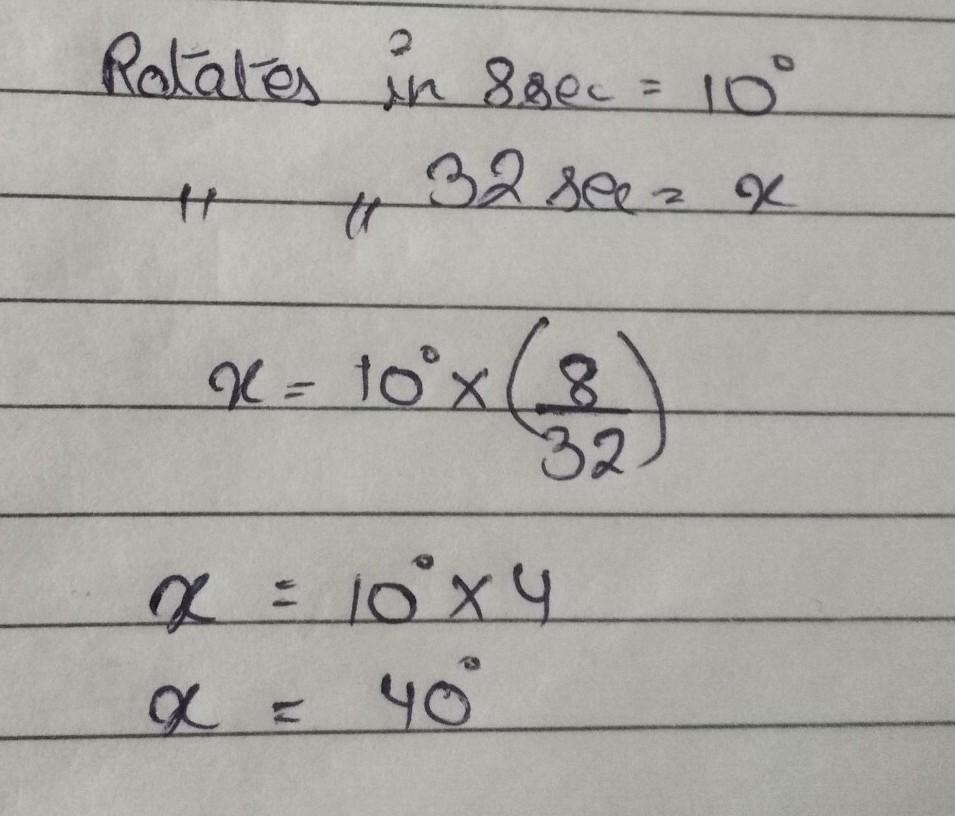 Rotates in 8sec = 10°
" " 32 sec = x
x = 10° × (8/32)
x = 10° × 4
x = 40°